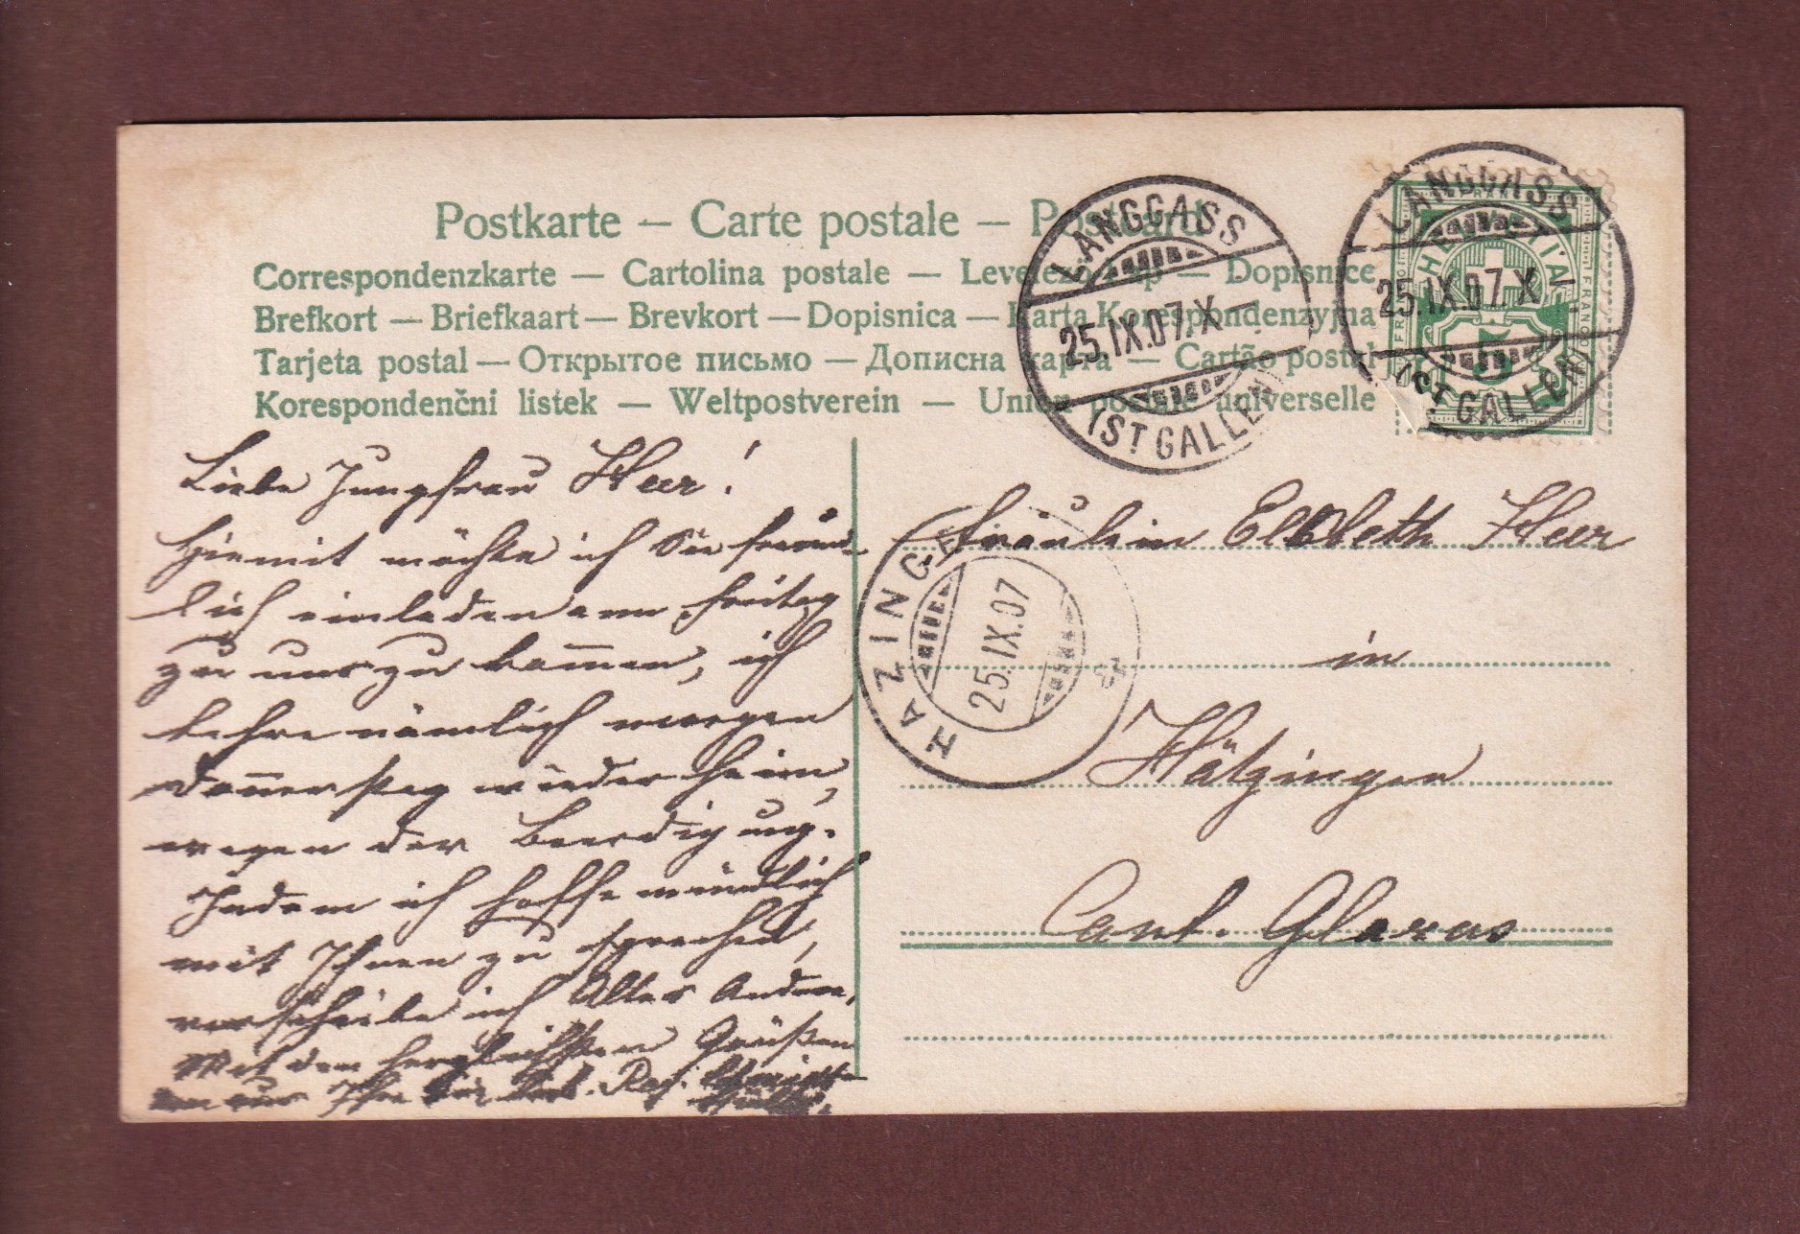 Postkarte – Carte postale – Postcard
Correspondenzkarte — Cartolina postale — Levelező-lap — Dopisnice
Brefkort — Briefkaart — Brevkort — Dopisnica — Karta Korespondenzyjna
Tarjeta postal — Открытое письмо — Дописна карта — Cartão postal
Korespondenčni listek — Weltpostverein — Union postale universelle
LANGGASS
25.IX.07.X
(ST GALLEN)
LANGGASS
25.IX.07.X
(ST GALLEN)
HELVETIA
FRANCO
5
Liebe Jungfrau Heer!
Hiemit möchte ich Sie freund-
lich einladen am Freitag
zu uns zu kommen, ich
kehre nämlich morgen
Donnerstag wieder heim,
wegen der Beerdigung.
Indem ich hoffe mündlich
mit Ihnen zu sprechen,
verschiebe ich Alles Andere,
Mit den herzlichsten Grüßen
Ihre
HÄZINGEN
25.IX.07
Fräulein Elsbeth Heer
in
Hätzingen
Cant. Glarus